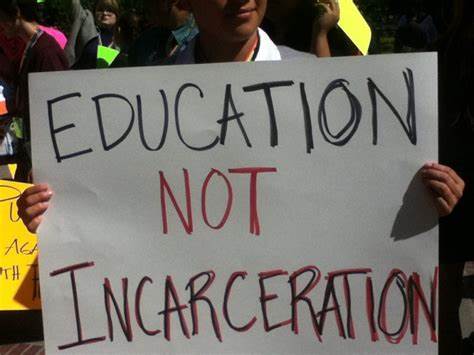 EDUCATION
NOT
INCARCERATION
AGA
TH